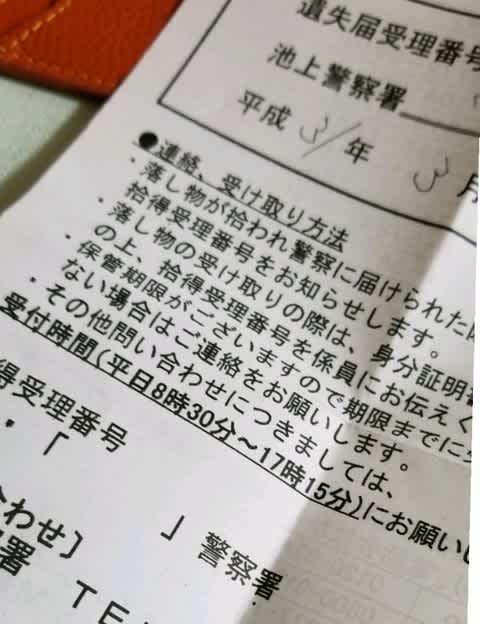 遺失届受理番号
池上警察署
平成 31年 3月
●連絡、受け取り方法
・落し物が拾われ警察に届けられた
拾得受理番号をお知らせします。
・落し物の受け取りの際は、身分証明
の上、拾得受理番号を係員にお伝えく
・保管期限がございますので期限までに
ない場合はご連絡をお願いします。
・その他問い合わせにつきましては、
受付時間(平日8時30分～17時15分)にお願いし
得受理番号
・「
」警察署
わせ〕
署 TE